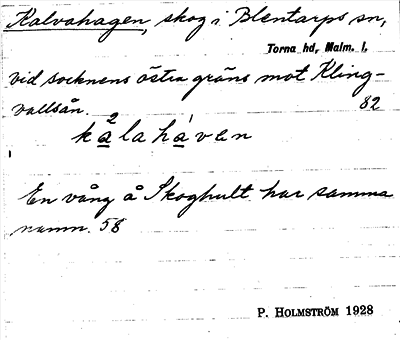 Kalvahagen, skog i Blentarps sn,
Torna hd, Malm. l,
vid socknens östra gräns mot Kling-
vallsån. 82
kalahaven
En vång å Skoghult har samma
namn. 58
P. HOLMSTRÖM 1928